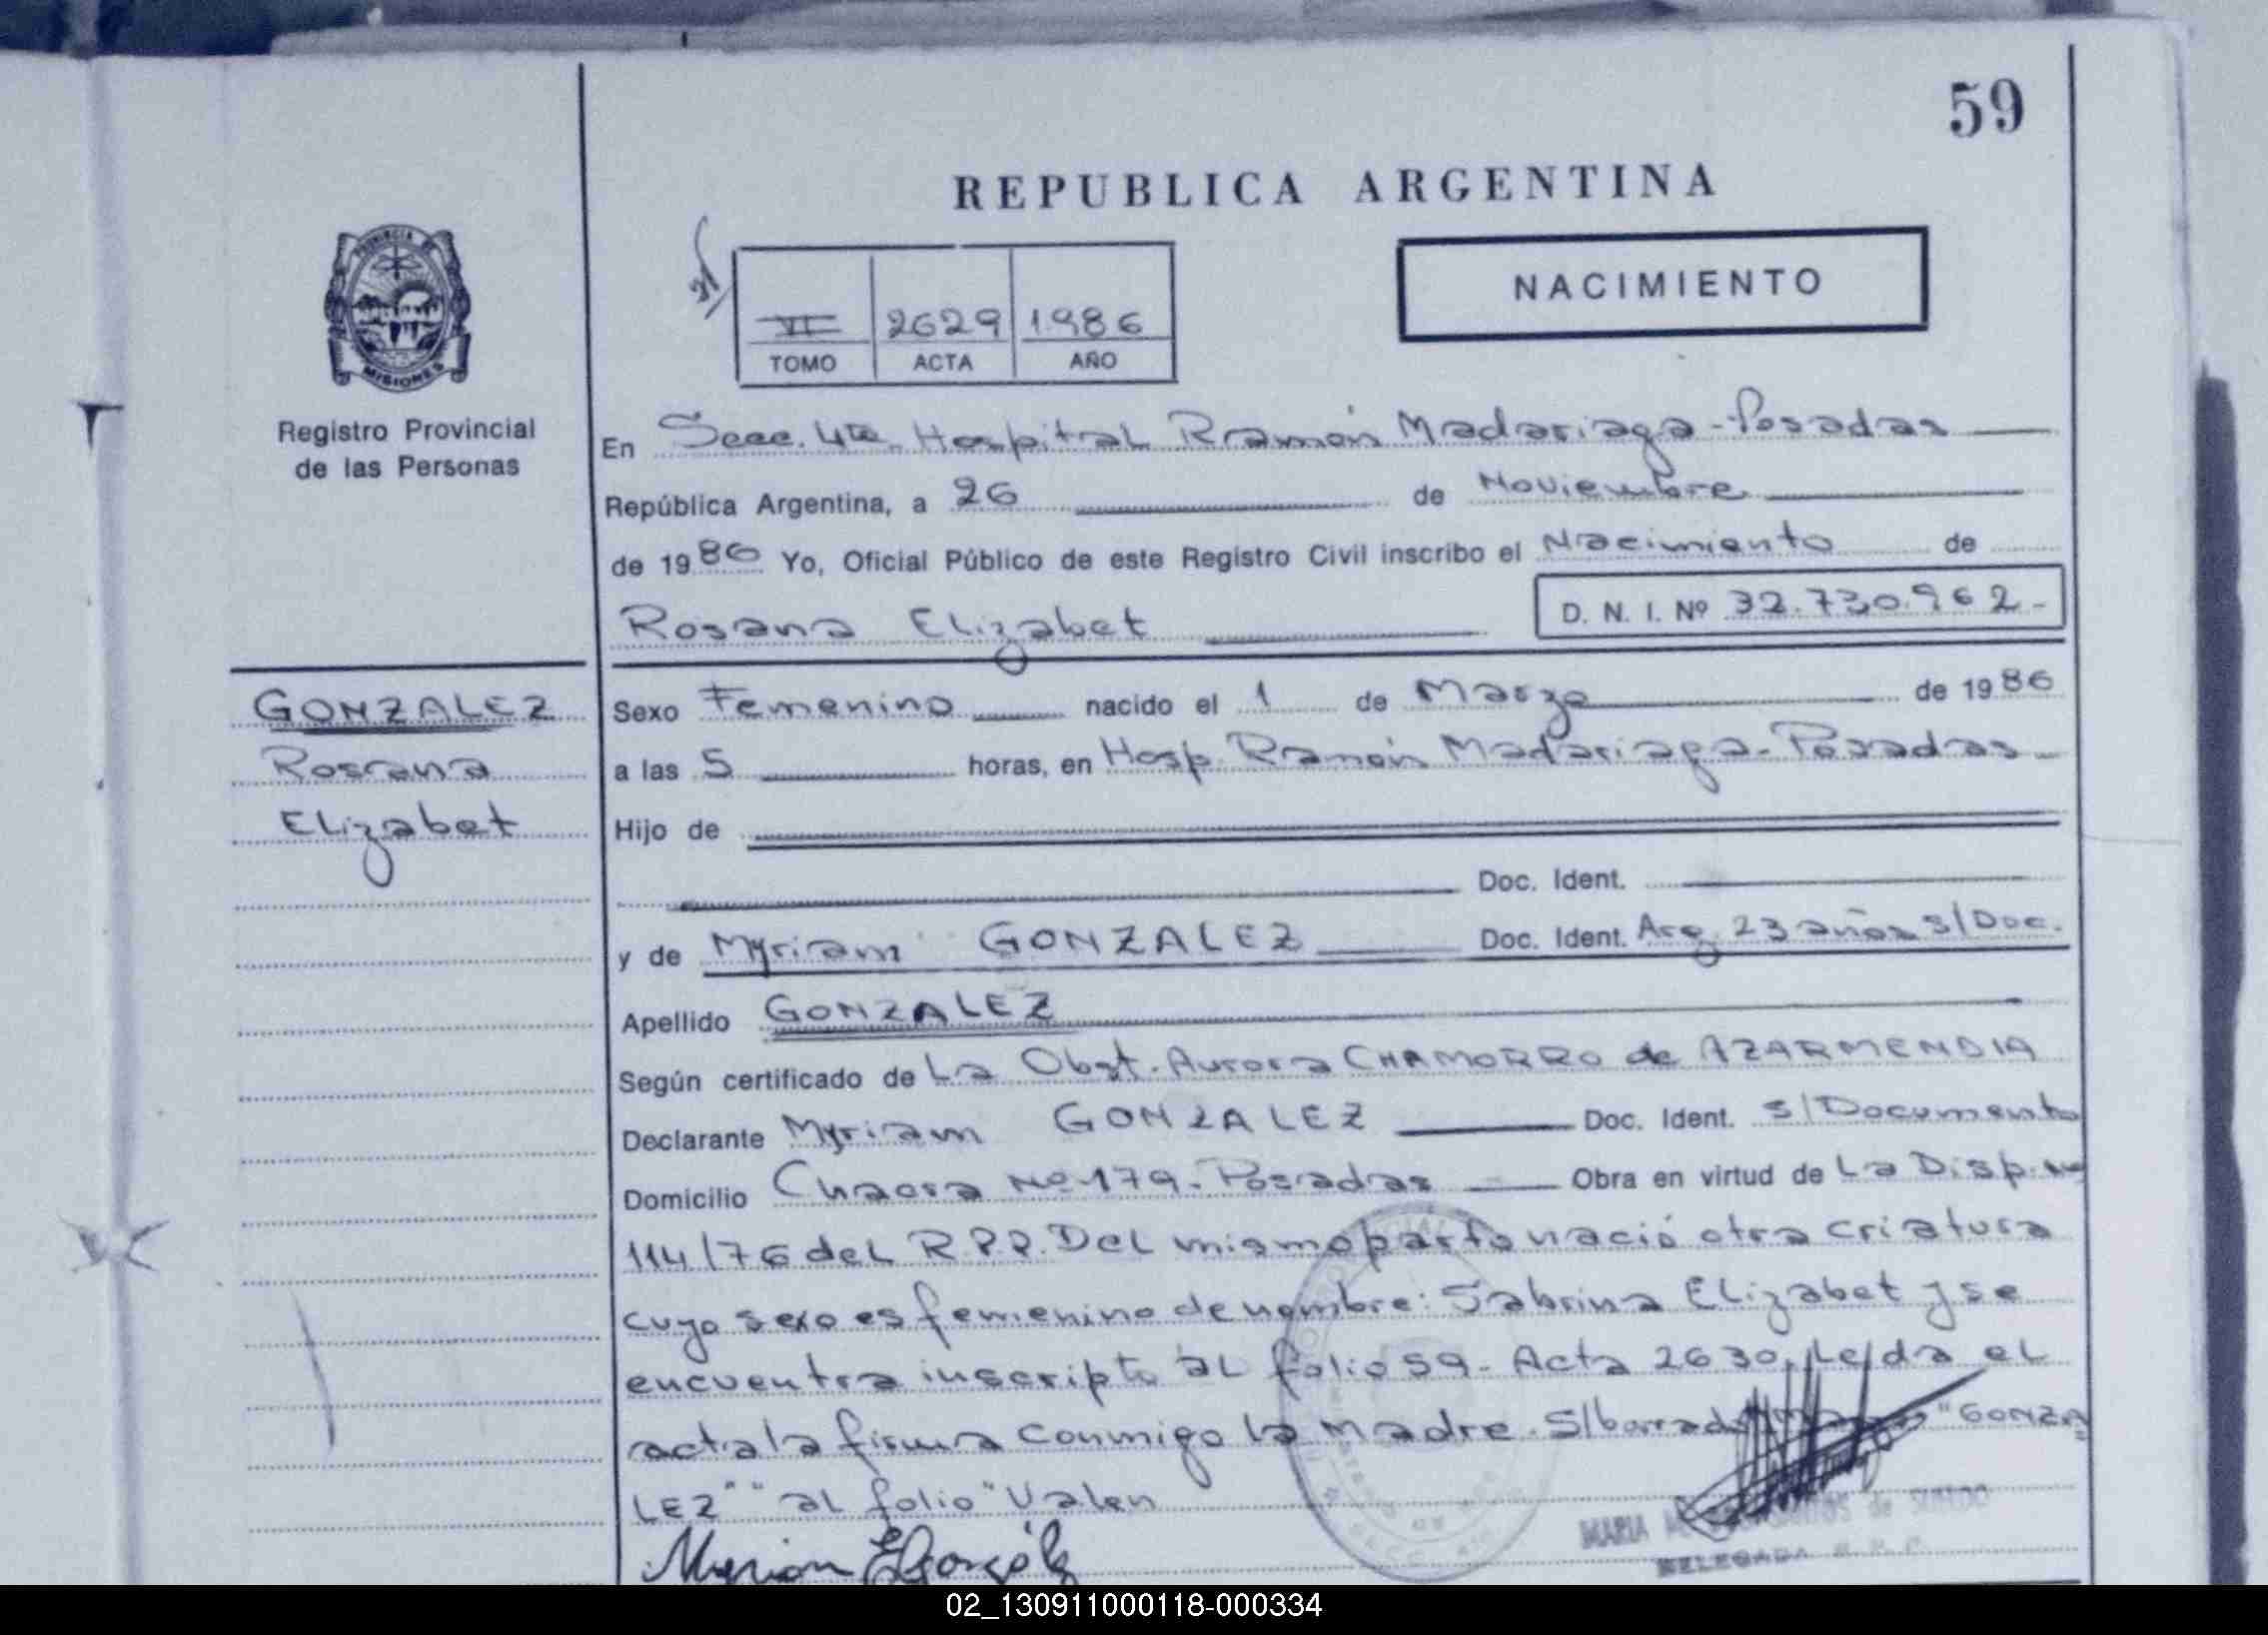 59
REPUBLICA ARGENTINA
PROVINCIA DE
MISIONES
Registro Provincial
de las Personas
VI 2629 1986
TOMO ACTA AÑO
NACIMIENTO
En Secc. 4ta. Hospital Ramón Madariaga - Posadas
República Argentina, a 26 de Noviembre
de 1986 Yo, Oficial Público de este Registro Civil inscribo el Nacimiento de
Rosana Elizabet
D. N. I. Nº 32.730.962-
GONZALEZ
Rosana
Elizabet
Sexo Femenino nacido el 1 de Marzo de 1986
a las 5 horas, en Hosp. Ramón Madariaga - Posadas
Hijo de
Doc. Ident.
y de Myriam GONZALEZ Doc. Ident. Arg. 23 años s/Doc.
Apellido GONZALEZ
Según certificado de La Obst. Aurora CHAMORRO de AZARMENDIA
Declarante Myriam GONZALEZ Doc. Ident. s/Documento
Domicilio Chacra Nº 179 - Posadas Obra en virtud de La Disp.
114/76 del R.P.P. Del mismo parto nació otra criatura
cuyo sexo es femenino de nombre: Sabrina Elizabet y se
encuentra inscripto al folio 59 - Acta 2630. Leída el
acta la firma conmigo la madre. S/borrado "GONZA
LEZ" "al folio" Valen
Myriam E González
MARIA de SUELDO
DELEGADA R. P. P.
02_130911000118-000334